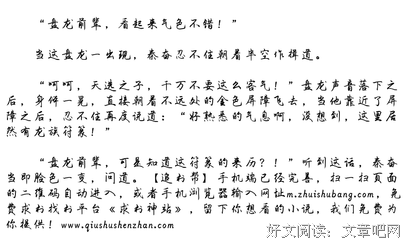 “盘龙前辈，看起来气色不错！”
当这盘龙一出现，秦奋忍不住朝着半空作揖道。
“呵呵，天选之子，千万不要这么客气！”盘龙声音落下之
后，身体一晃，直接朝着不远处的金色屏障飞去，当他靠近了屏
障之后，忍不住再度说道：“好熟悉的气息啊，没想到，这里居
然有龙族符篆！”
“盘龙前辈，可是知道这符篆的来历？！”听到这话，秦奋
当即脸色一变，问道。【追书帮】手机端已经完善，扫一扫页面
的二维码自动进入，或者手机浏览器输入网址m.zhuishubang.com，免
费求书找书平台《求书神站》，留下你想看的小说，我们免费为
你提供！www.qiushushenzhan.com
好文阅读：文章吧网